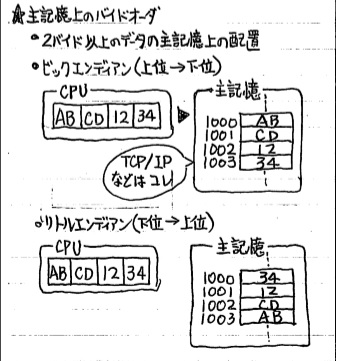 ★主記憶上のバイドオーダ
•2バイド以上のデータの主記憶上の配置
•ビックエンディアン(上位→下位)
CPU
AB CD 12 34
主記憶
1000 AB
1001 CD
1002 12
1003 34
TCP/IP
などはコレ!
•リトルエンディアン(下位→上位)
CPU
AB CD 12 34
主記憶
1000 34
1001 12
1002 CD
1003 AB